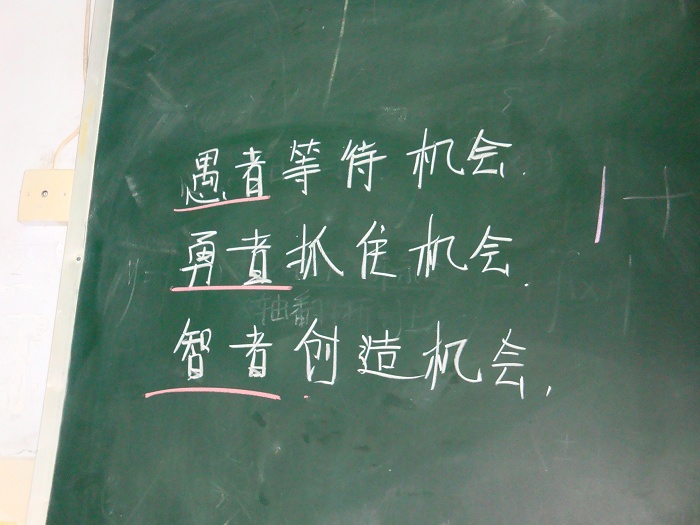 愚者等待机会.
勇者抓住机会.
智者创造机会,